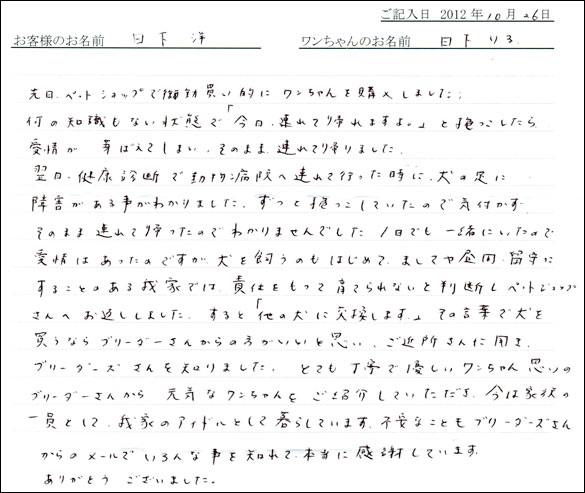 ご記入日 2012年10月26日
お客様のお名前 日下 洋 ワンちゃんのお名前 日下 りる
先日、ペットショップで衝動買い的にワンちゃんを購入しました。
何の知識もない状態で「今日、連れて帰れますよ。」と抱っこしたら
愛情が芽ばえてしまい、そのまま連れて帰りました。
翌日、健康診断で動物病院へ連れて行った時に、犬の足に
障害がある事がわかりました。ずっと抱っこしていたので気付かず
そのまま連れて帰ったのでわかりませんでした。1日でも一緒にいたので
愛情はあったのですが、犬を飼うのもはじめて、ましてや昼間、留守に
することのある我家では、責任をもって育てられないと判断しペットショップ
さんへお返ししました。すると「他の犬に交換します。」その言葉で犬を
買うならブリーダーさんからの方がいいと思い、ご近所さんに聞き、
ブリーダーズさんを知りました。とても丁寧で優しいワンちゃん思いの
ブリーダーさんから元気なワンちゃんをご紹介していただき、今は家族の
一員として、我家のアイドルとして暮らしています。不安なこともブリーダーズさん
からのメールでいろんな事を知れて、本当に感謝しています。
ありがとうございました。